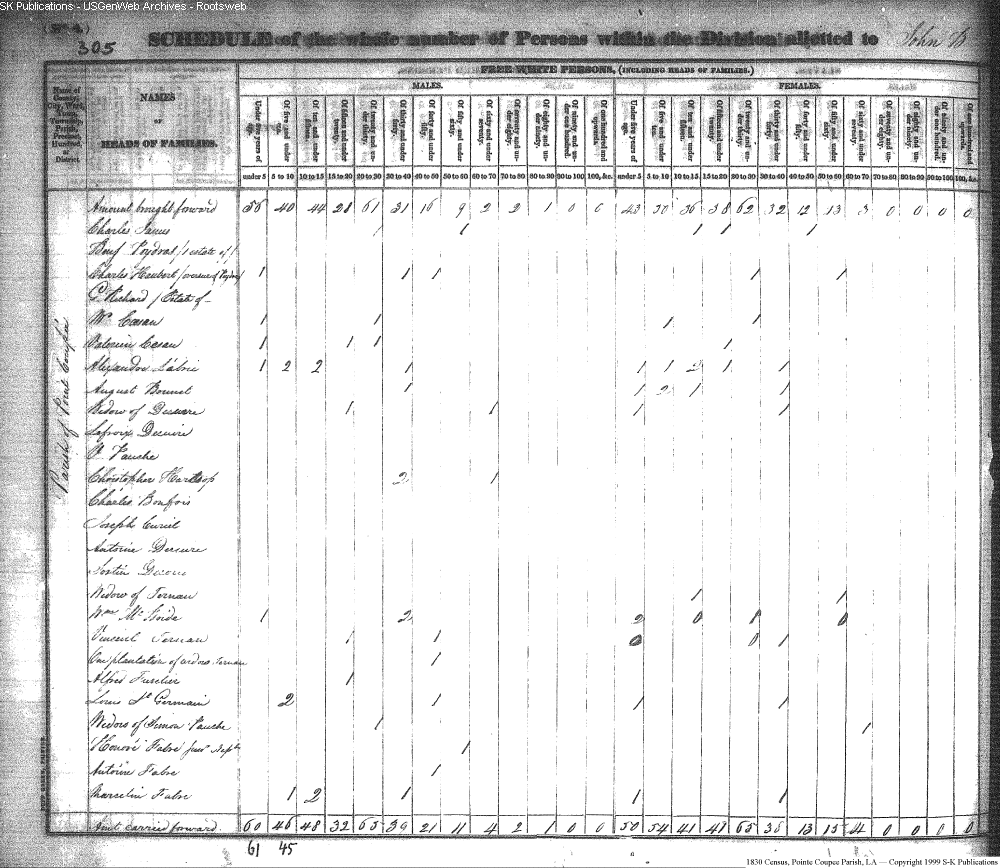 SK Publications - USGenWeb Archives - Rootsweb
305
SCHEDULE of the whole number of Persons within the Division allotted to John B
FREE WHITE PERSONS, (INCLUDING HEADS OF FAMILIES.)
MALES. FEMALES.
Name of County, City, Ward, Town, Township, Parish, Precinct, Hundred, or District
NAMES
OF
HEADS OF FAMILIES.
Under five years of age. Of five and under ten. Of ten and under fifteen. Of fifteen and under twenty. Of twenty and under thirty. Of thirty and under forty. Of forty and under fifty. Of fifty and under sixty. Of sixty and under seventy. Of seventy and under eighty. Of eighty and under ninety. Of ninety and under one hundred. Of one hundred and upwards.
Under five years of age. Of five and under ten. Of ten and under fifteen. Of fifteen and under twenty. Of twenty and under thirty. Of thirty and under forty. Of forty and under fifty. Of fifty and under sixty. Of sixty and under seventy. Of seventy and under eighty. Of eighty and under ninety. Of ninety and under one hundred. Of one hundred and upwards.
under 5 5 to 10 10 to 15 15 to 20 20 to 30 30 to 40 40 to 50 50 to 60 60 to 70 70 to 80 80 to 90 90 to 100 100, &c. under 5 5 to 10 10 to 15 15 to 20 20 to 30 30 to 40 40 to 50 50 to 60 60 to 70 70 to 80 80 to 90 90 to 100 100, &c.
Parish of Point Coupee
Amount brought forward 56 40 44 28 61 31 16 9 2 2 1 0 0 43 50 36 38 62 32 12 13 3 0 0 0 0
Charles James 1 1 1 1 1
Benj Poydras / estate of /
Charles Haubert 1 1 1 1 1
C. Richard / Estate of
Wm Cesan 1 1 1 1
Valerien Cesan 1 1 1 1
Alexandre Labrie 1 2 2 1 1 1 2 1 1
August Bonnet 1 1 2 1 1
Widow of Decuire 1 1 1 1
Lafroix Decuire
Vauche
Christopher 2 1
Charles Bonfois
Joseph Curiel
Antoine Decuire
Widow of Ternan 1 1
Wm Mc 1 2 2 0 0
Vincent Ternan 1 1 0 0 1
On plantation of widow Ternan 1
Alfred Fuselier 1
Louis St Germain 2 1 1 1
Widow of Simon Vauche 1 1
Honoré Fabre 1
Antoine Fabre 1
Marcelin Fabre 1 2 1 1 1
Amt carried forward 60 46 48 32 65 39 21 11 4 2 1 0 0 50 54 41 41 65 38 13 15 4 0 0 0 0
61 45
1830 Census, Pointe Coupee Parish, LA — Copyright 1999 S-K Publications